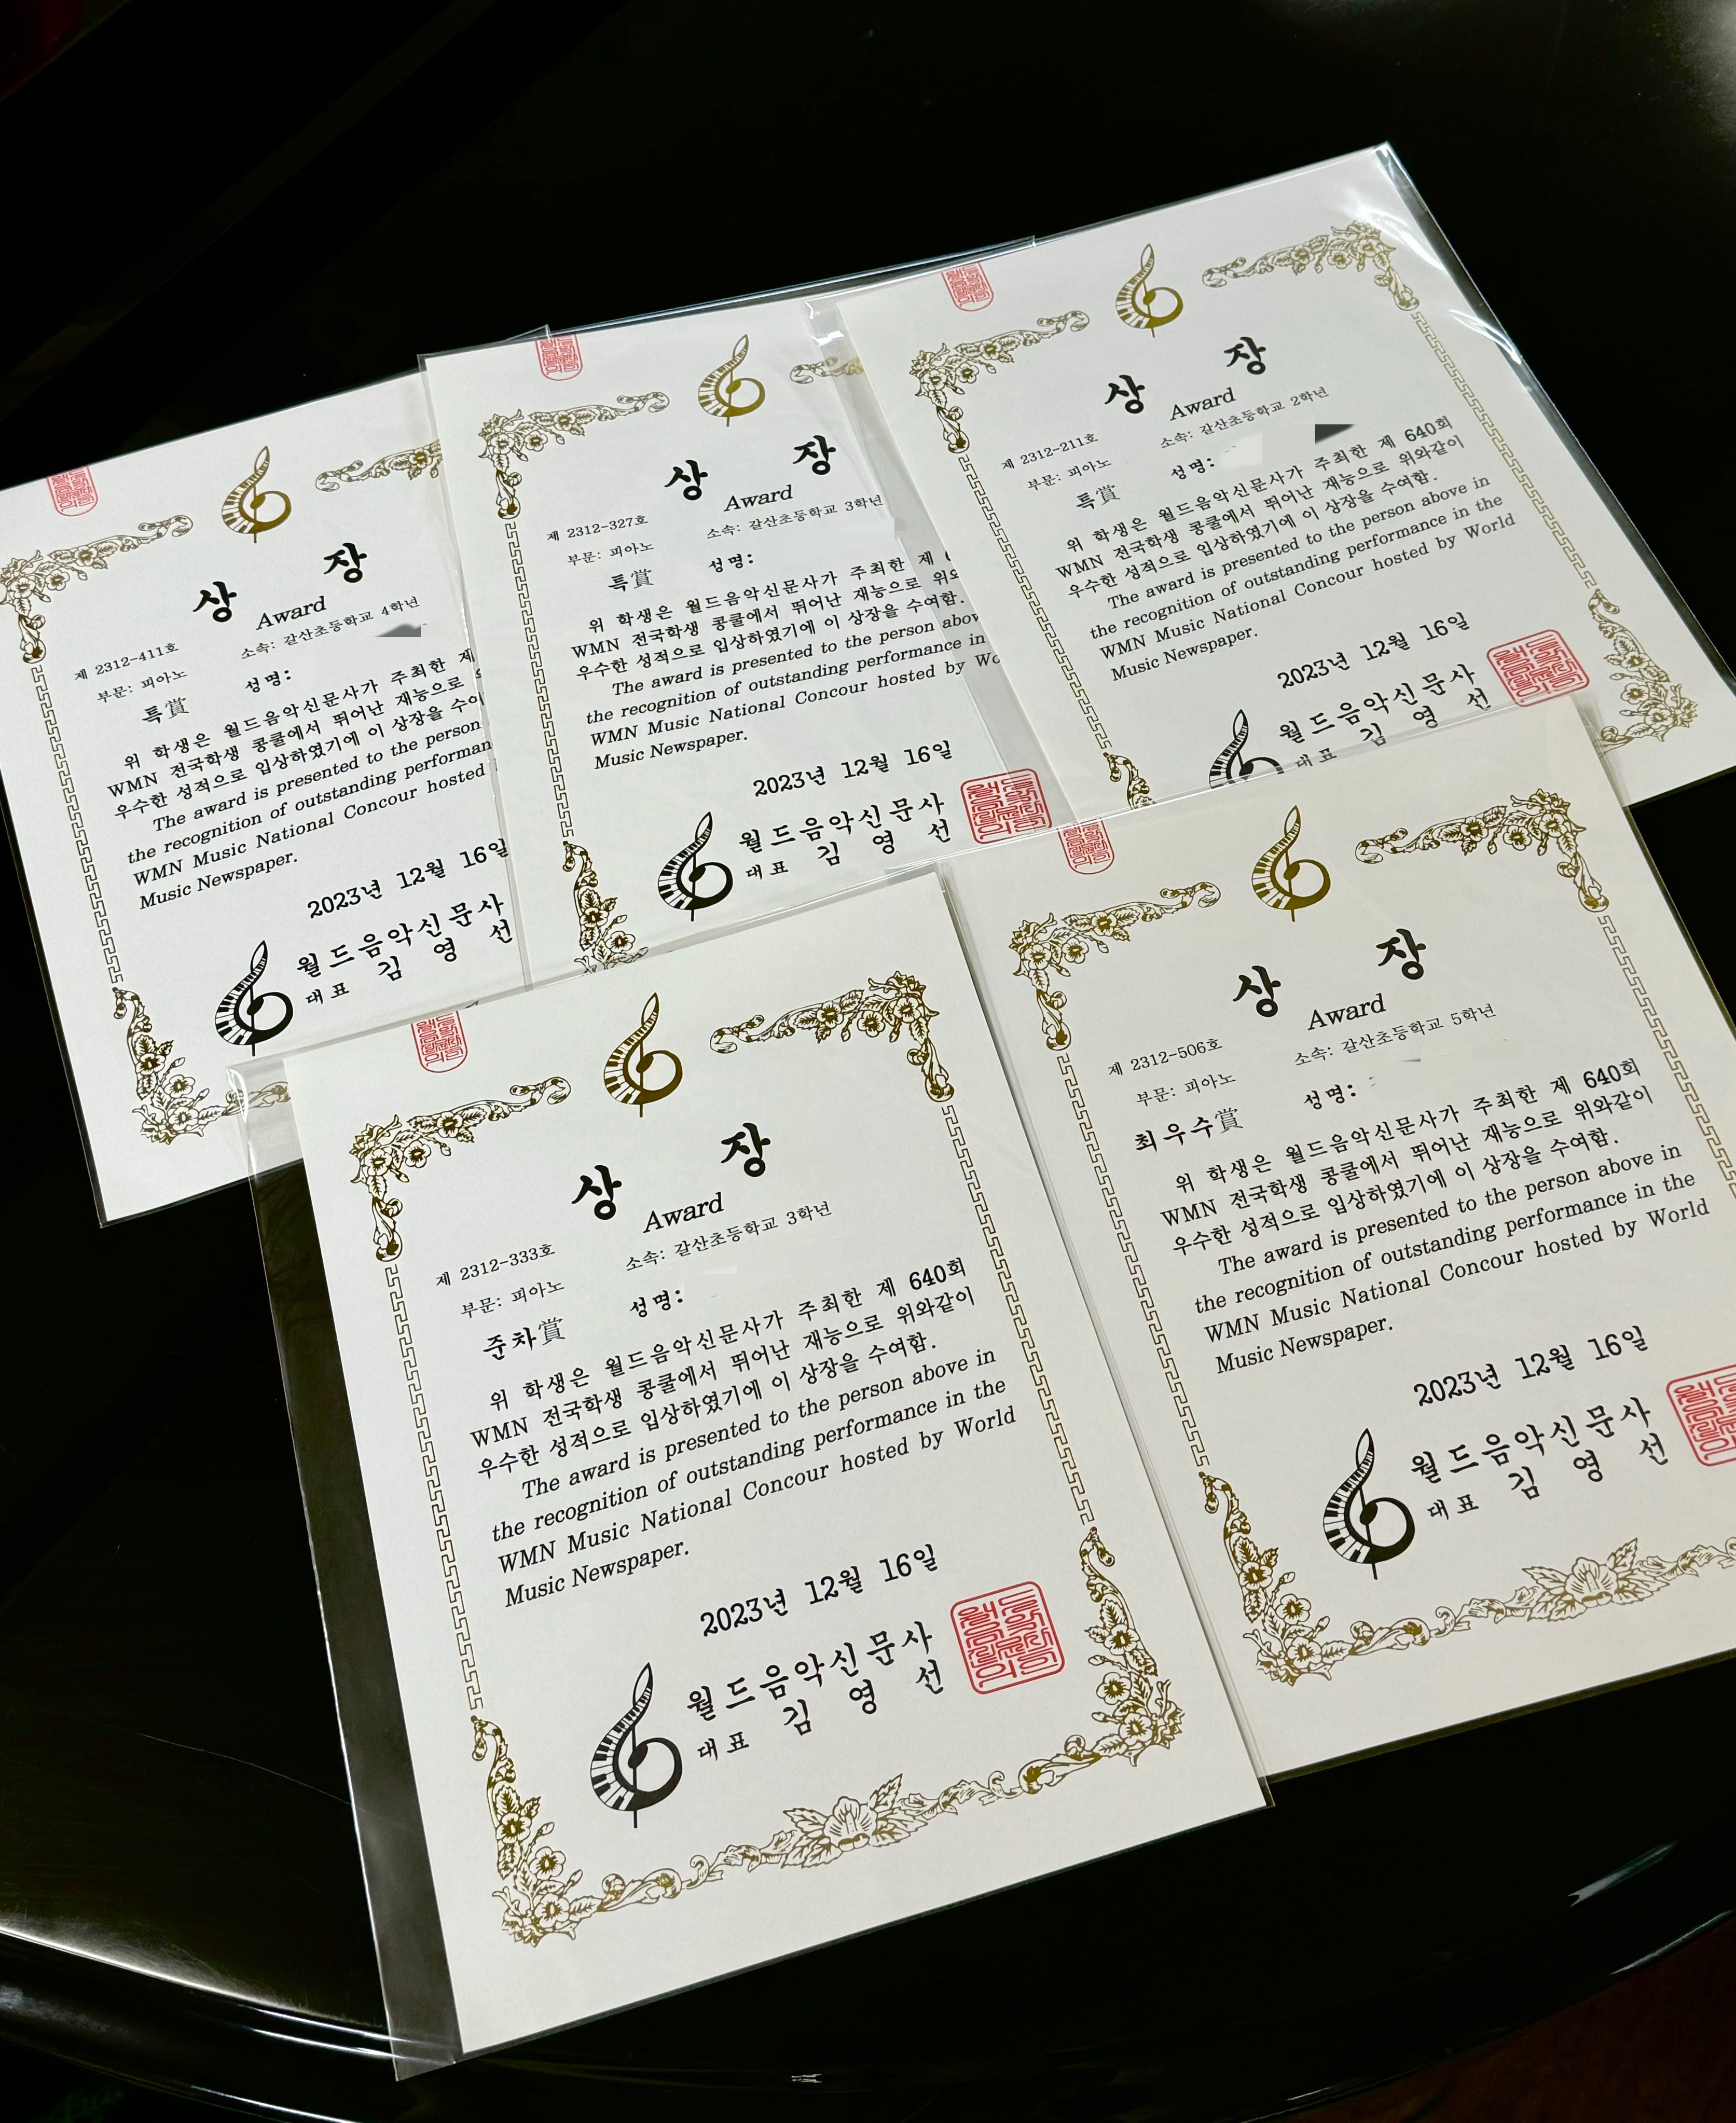 상 장
Award
제 2312-411호
소속: 갈산초등학교 4학년
부문: 피아노
성명:
특賞
위 학생은 월드음악신문사가 주최한 제
WMN 전국학생 콩쿨에서 뛰어난 재능으로
우수한 성적으로 입상하였기에 이 상장을 수여
The award is presented to the person
the recognition of outstanding performan
WMN Music National Concour hosted
Music Newspaper.
2023년 12월 16일
월드음악신문사
대표 김 영 선
상 장
Award
제 2312-327호
소속: 갈산초등학교 3학년
부문: 피아노
성명:
특賞
위 학생은 월드음악신문사가 주최한 제
WMN 전국학생 콩쿨에서 뛰어난 재능으로 위와
우수한 성적으로 입상하였기에 이 상장을 수여함.
The award is presented to the person abov
the recognition of outstanding performance in
WMN Music National Concour hosted by Wo
Music Newspaper.
2023년 12월 16일
월드음악신문사
대표 김 영 선
상 장
Award
제 2312-211호
소속: 갈산초등학교 2학년
부문: 피아노
성명:
특賞
위 학생은 월드음악신문사가 주최한 제 640회
WMN 전국학생 콩쿨에서 뛰어난 재능으로 위와같이
우수한 성적으로 입상하였기에 이 상장을 수여함.
The award is presented to the person above in
the recognition of outstanding performance in the
WMN Music National Concour hosted by World
Music Newspaper.
2023년 12월 16일
월드음악신문사
대표 김 영 선
상 장
Award
제 2312-333호
소속: 갈산초등학교 3학년
부문: 피아노
성명:
준차賞
위 학생은 월드음악신문사가 주최한 제 640회
WMN 전국학생 콩쿨에서 뛰어난 재능으로 위와같이
우수한 성적으로 입상하였기에 이 상장을 수여함.
The award is presented to the person above in
the recognition of outstanding performance in the
WMN Music National Concour hosted by World
Music Newspaper.
2023년 12월 16일
월드음악신문사
대표 김 영 선
상 장
Award
제 2312-506호
소속: 갈산초등학교 5학년
부문: 피아노
성명:
최우수賞
위 학생은 월드음악신문사가 주최한 제 640회
WMN 전국학생 콩쿨에서 뛰어난 재능으로 위와같이
우수한 성적으로 입상하였기에 이 상장을 수여함.
The award is presented to the person above in
the recognition of outstanding performance in the
WMN Music National Concour hosted by World
Music Newspaper.
2023년 12월 16일
월드음악신문사
대표 김 영 선